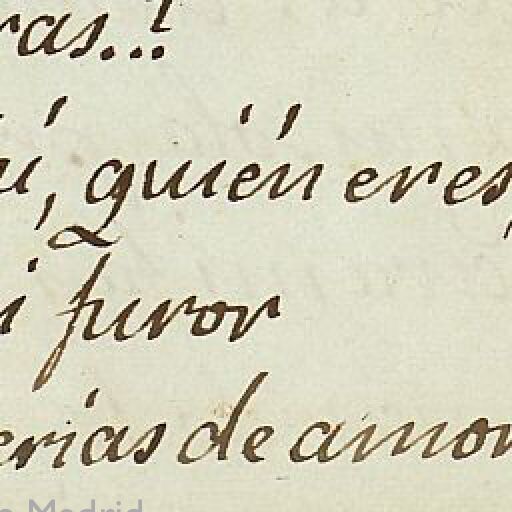 ras...!
ú, quién eres,
i furor
erias de amor
Madrid